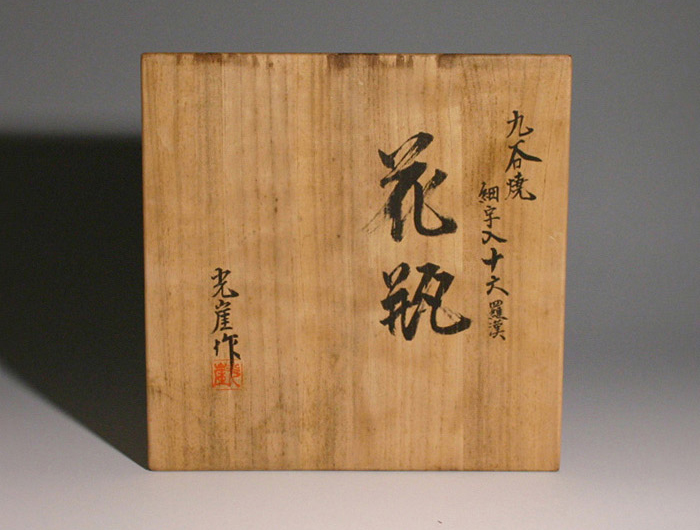 九谷焼
細字入十六羅漢
花瓶
光崖作